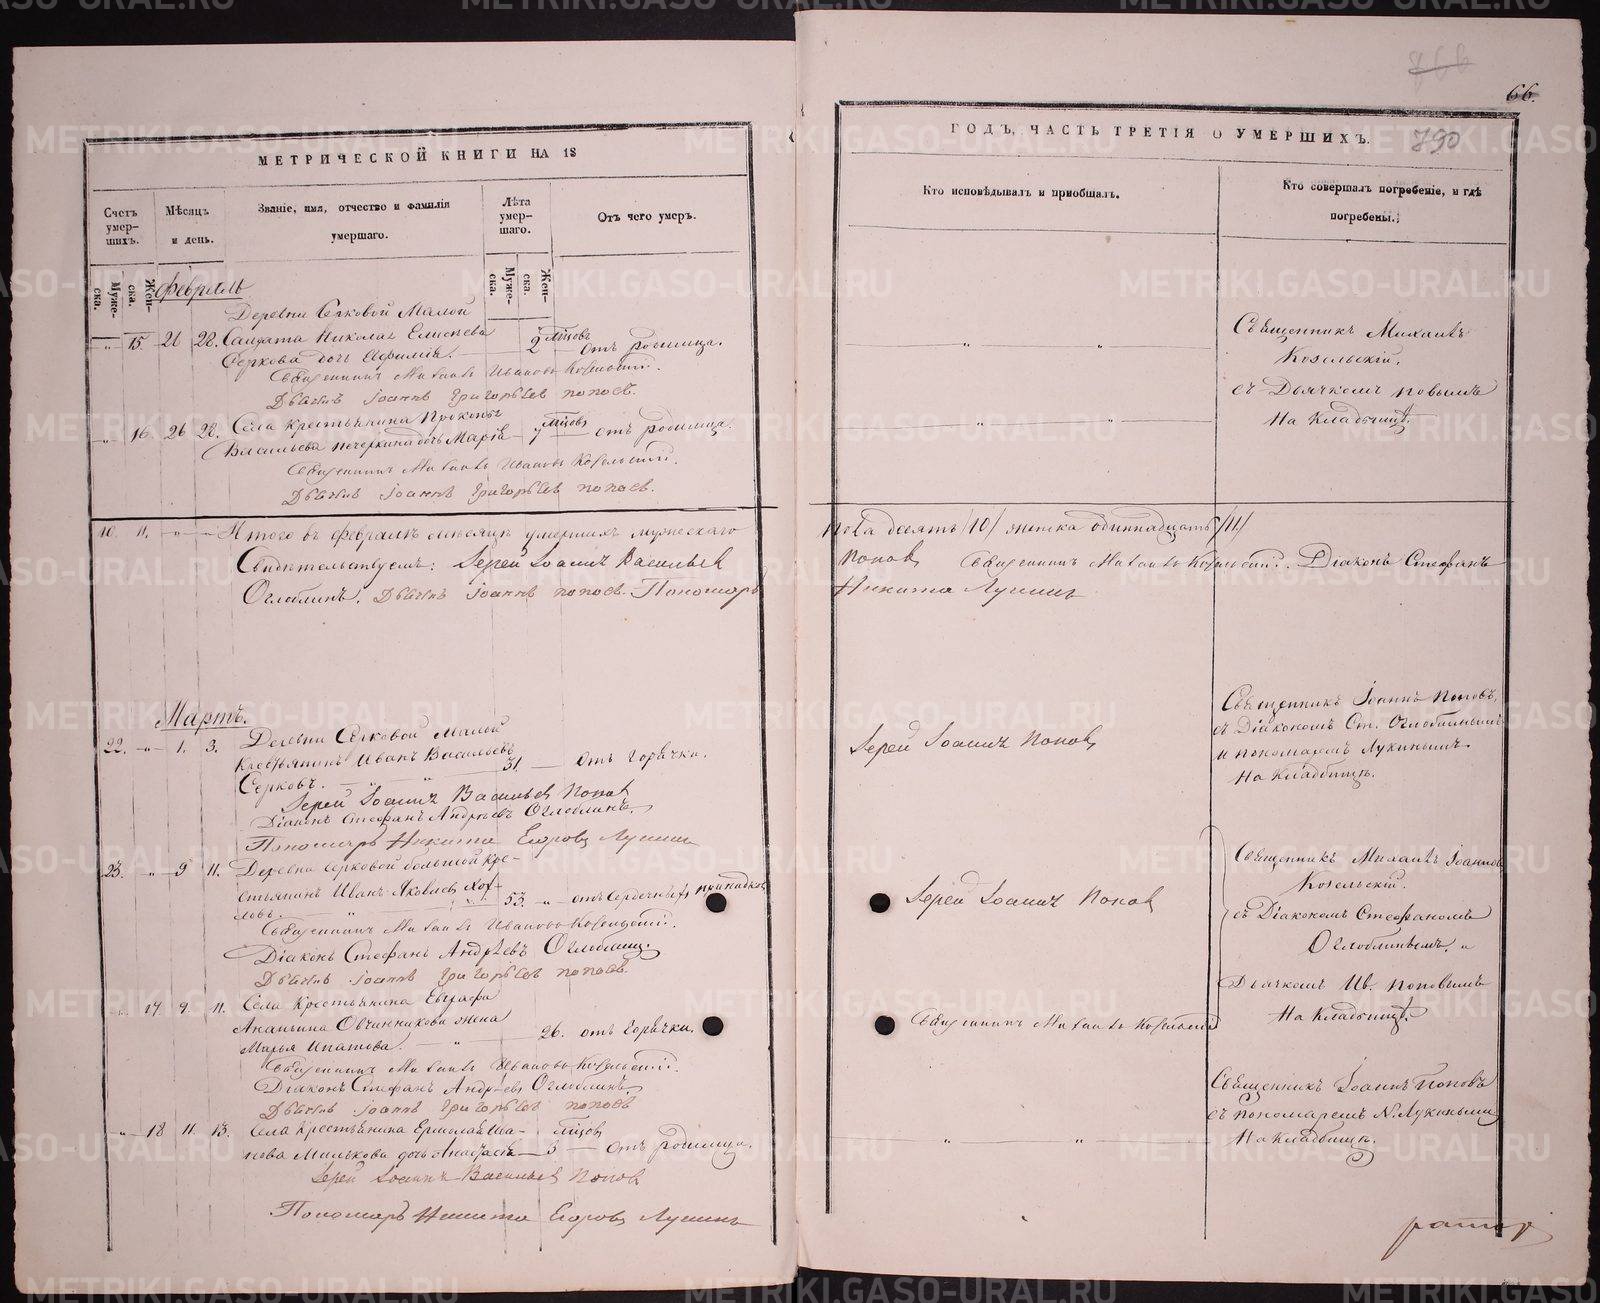 МЕТРИЧЕСКОЙ КНИГИ НА 18
Счетъ умер-шихъ.
Мѣсяцъ и день.
Званіе, имя, отчество и фамилія умершаго.
Лѣта умер-шаго.
Отъ чего умеръ.
Муже-ска.
Жен-ска.
Муже-ска.
Жен-ска.
Февраль
Деревни Серковой Малой
15. 21 22. Солдата Николая Елисѣева 2 мѣцовъ отъ родимца.
Серкова дочь Афимія.
Священникъ Михаилъ Ивановъ Козельскій.
Дьячекъ Іоаннъ Григорьевъ Поповъ.
16. 26 28. Села крестьянина Прокопья
Васильева Печеркина дочь Марія 7 мѣцовъ отъ родимца.
Священникъ Михаилъ Ивановъ Козельскій.
Дьячекъ Іоаннъ Григорьевъ Поповъ.
10. 11. Итого въ февралѣ мѣсяцѣ умершихъ мужескаго
Свидѣтельствуемъ: Іерей Іоаннъ Васильевъ
Оглоблинъ. Дьячекъ Іоаннъ Поповъ. Пономарь
Мартъ.
22. 1. 3. Деревни Серковой Малой
Крестьянинъ Иванъ Васильевъ 31 отъ горячки.
Серковъ.
Іерей Іоаннъ Васильевъ Поповъ
Діаконъ Стефанъ Андреевъ Оглоблинъ.
Пономарь Никита Егоровъ Лукинъ
23. 9 11. Деревни Серковой большой кре-
стьянинъ Иванъ Яковлевъ 53. отъ сердечныхъ припадковъ
Священникъ Михаилъ Ивановъ Козельскій.
Діаконъ Стефанъ Андреевъ Оглоблинъ.
Дьячекъ Іоаннъ Григорьевъ Поповъ.
17 9. 11. Села Крестьянина Евграфа
Ананьина Овчинникова жена 26. отъ горячки.
Марья Ипатова.
Священникъ Михаилъ Ивановъ Козельскій.
Діаконъ Стефанъ Андреевъ Оглоблинъ
Дьячекъ Іоаннъ Григорьевъ Поповъ
18 11. 13. Села Крестьянина Ермолая Ива- мѣцовъ
нова Милькова дочь Анастасія 3 отъ родимца.
Іерей Іоаннъ Васильевъ Поповъ
Пономарь Никита Егоровъ Лукинъ
66.
790
ГОДЪ, ЧАСТЬ ТРЕТІЯ О УМЕРШИХЪ.
Кто исповѣдывалъ и пріобщалъ.
Кто совершалъ погребеніе, и гдѣ погребены.
Священникъ Михаилъ
Козельскій.
съ Дьячкомъ Поповымъ
На Кладбищѣ.
пола десять /10/ женска одиннадцать /11/
Поповъ Священникъ Михаилъ Козельскій. Діаконъ Стефанъ
Никита Лукинъ
Іерей Іоаннъ Поповъ
Священникъ Іоаннъ Поповъ,
съ Діакономъ Ст. Оглоблинымъ
и пономаремъ Лукинымъ.
На Кладбищѣ.
Іерей Іоаннъ Поповъ
Священникъ Михаилъ Іоанновъ
Козельскій.
съ Діакономъ Стефаномъ
Оглоблинымъ. и
Дьячкомъ Ив. Поповымъ
На Кладбищѣ.
Священникъ Михаилъ Козельскій
Священникъ Іоаннъ Поповъ
съ пономаремъ Н. Лукинымъ
На Кладбищѣ.
METRIKI.GASO-URAL.RU